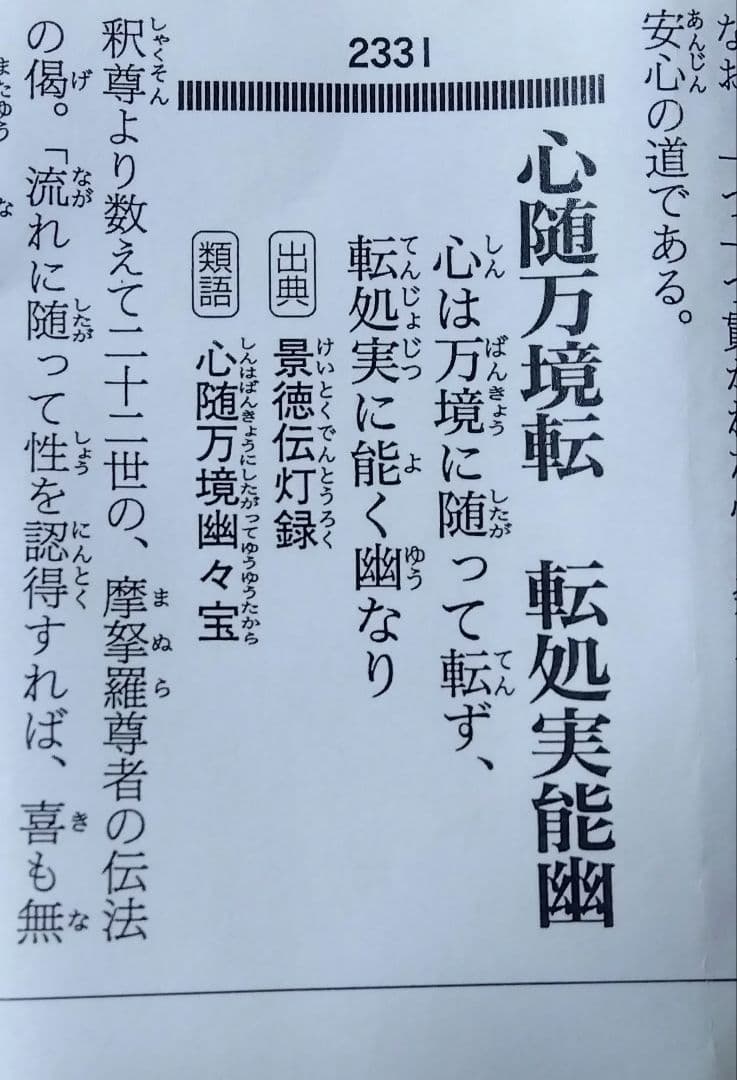 安心の道である。
2331
心随万境転　転処実能幽
心は万境に随って転ず、
転処実に能く幽なり
出典　景徳伝灯録
類語　心随万境幽々宝
釈尊より数えて二十二世の、摩拏羅尊者の伝法
の偈。「流れに随って性を認得すれば、喜も無